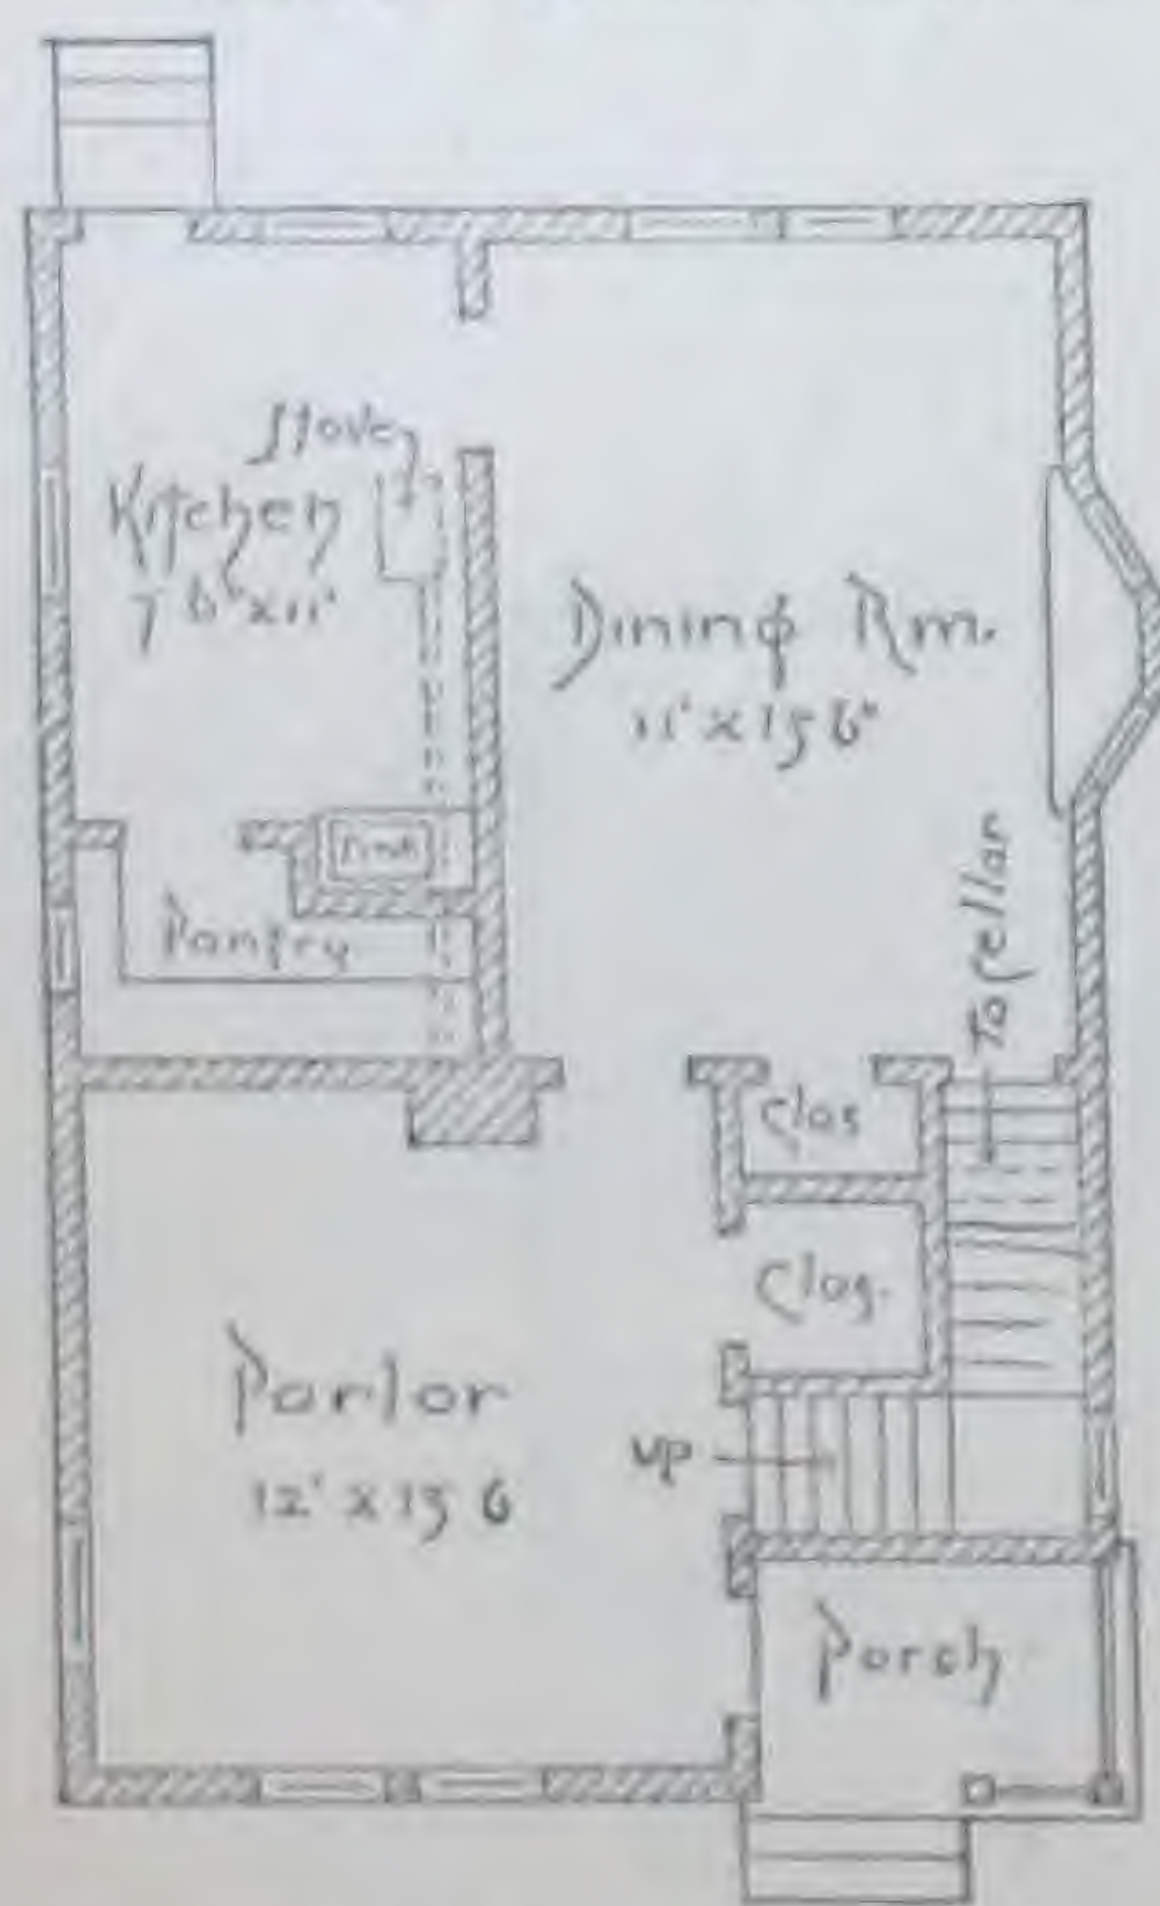 Stove
Kitchen
7' 6" x 11'
Dining Rm.
11' x 15 6"
Sink
Pantry
To Cellar
Clos
Clos.
Parlor
12' x 15 6
UP
Porch